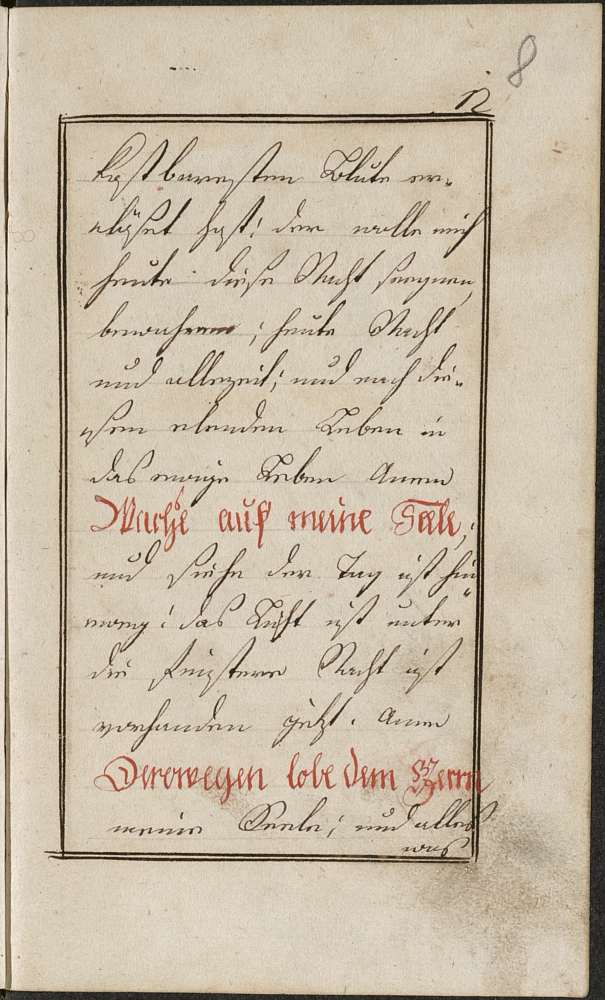 8
12
kostbaresten Blute er-
elöset hast: der wolle mich
heute diese Nacht seegnen,
bewahren; heute Nacht
und allezeit; und nach die-
sem elenden Leben in
das ewige Leben Amen
Wache auf meine Seele,
und siehe der Tag ist hin
weg: das Licht ist unter
die finstere Nacht ist
vorhanden jetzt. Amen
Derowegen lobe dem Herrn
meine Seele; und alles
was